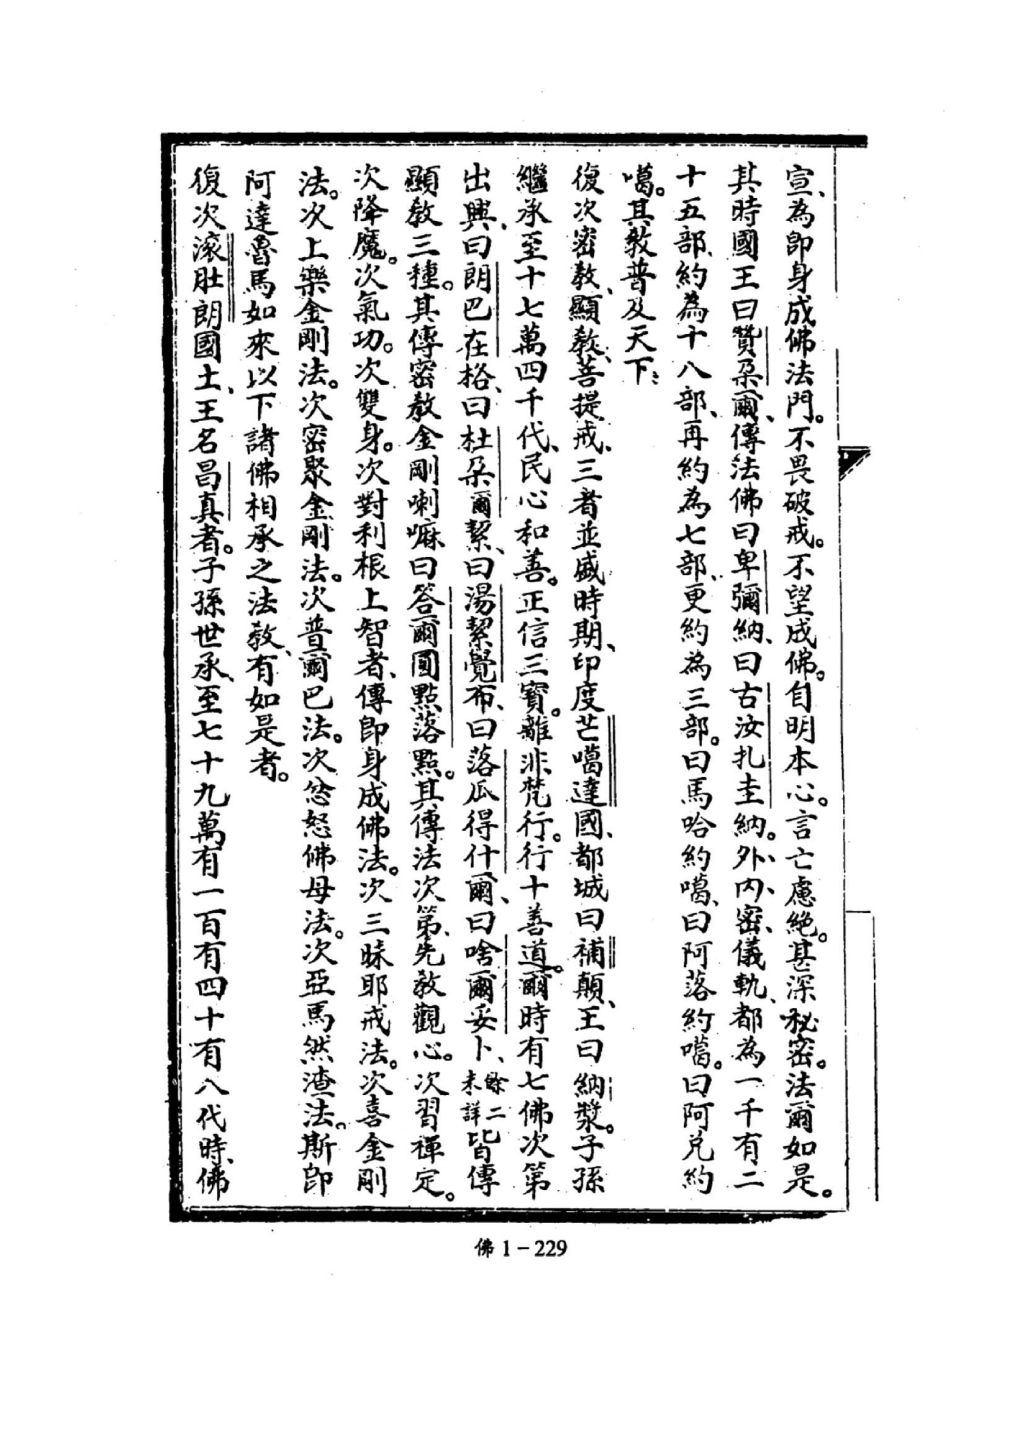 宣、為卽身成佛法門。不畏破戒。不望成佛。自明本心。言亡慮絕。甚深秘密。法爾如是。
其時國王曰贊朶爾、傳法佛曰卑彌納、曰古汝扎圭納。外、內、密、儀軌、都為一千有二
十五部、約為十八部、再約為七部、更約為三部。曰馬哈約噶、曰阿落約噶。曰阿兌約
噶。其教普及天下：
復次密教、顯教、菩提戒、三者並盛時期、印度芒噶達國、都城曰補顛、王曰納漿。子孫
繼承至十七萬四千代、民心和善。正信三寶。離非梵行。行十善道。爾時有七佛次第
出興、曰朗巴在格、曰杜朶爾絜、曰湯絜覺布、曰落瓜得什爾、曰啥爾妥卜、餘二未詳皆傳
顯教三種。其傳密教金剛喇嘛、曰答爾圓點落點。其傳法次第、先教觀心。次習禪定。
次降魔。次氣功。次雙身。次對利根上智者、傳卽身成佛法。次三昧耶戒法。次喜金剛
法。次上樂金剛法。次密聚金剛法。次普爾巴法。次忿怒佛母法。次亞馬然渣法。斯卽
阿達魯馬如來以下諸佛相承之法教、有如是者。
復次滾肚朗國土、王名昌真者。子孫世承、至七十九萬有一百有四十有八代時、佛
佛 1 － 229